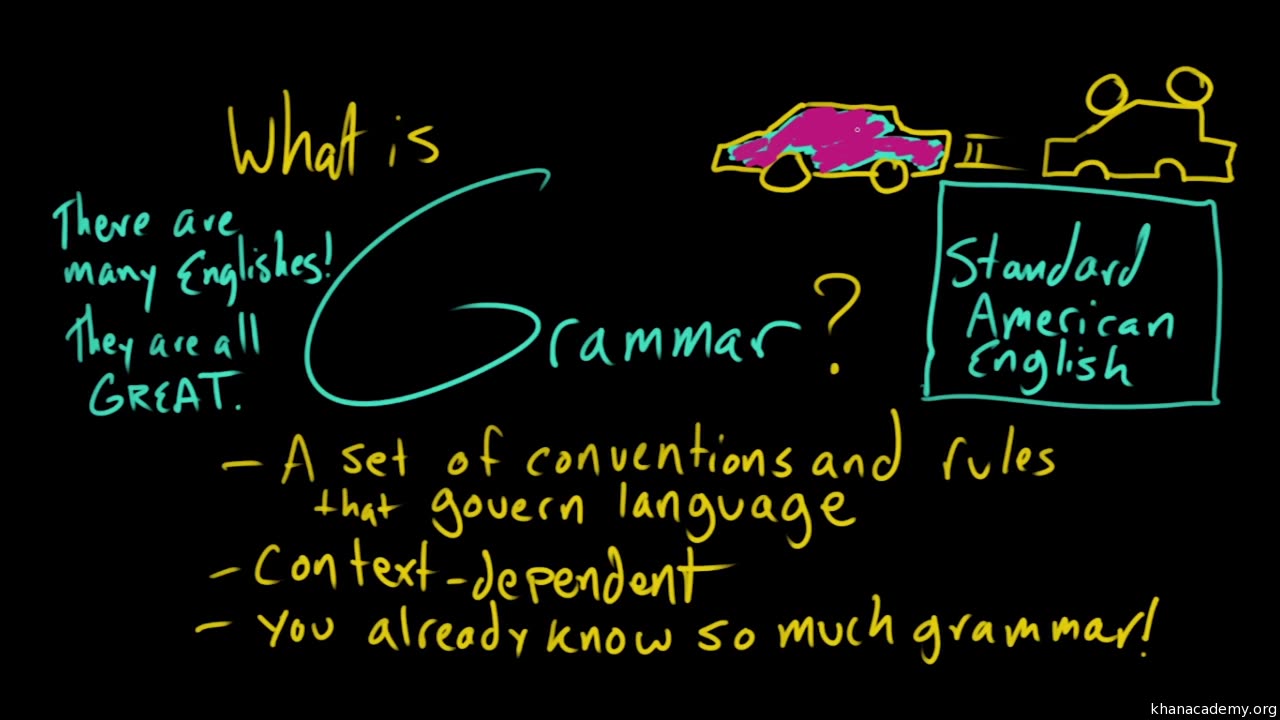 What is
Grammar?
There are
many Englishes!
They are all
GREAT.
Standard
American
English
- A set of conventions and rules
that govern language
- Context-dependent
- You already know so much grammar!
khanacademy.org